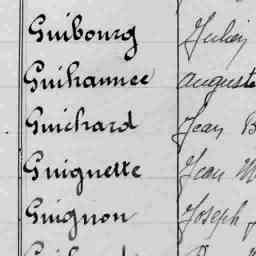 Guibourg Julien
Guihannee Auguste
Guichard Jean B
Guiguette Jean M
Guignon Joseph